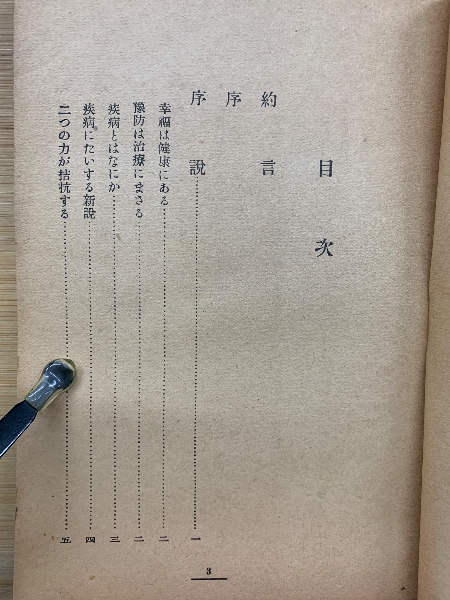 目次
約言
序
序説……一
幸福は健康にある……二
豫防は治療にまさる……二
疾病とはなにか……三
疾病にたいする新説……四
二つの力が拮抗する……五
3